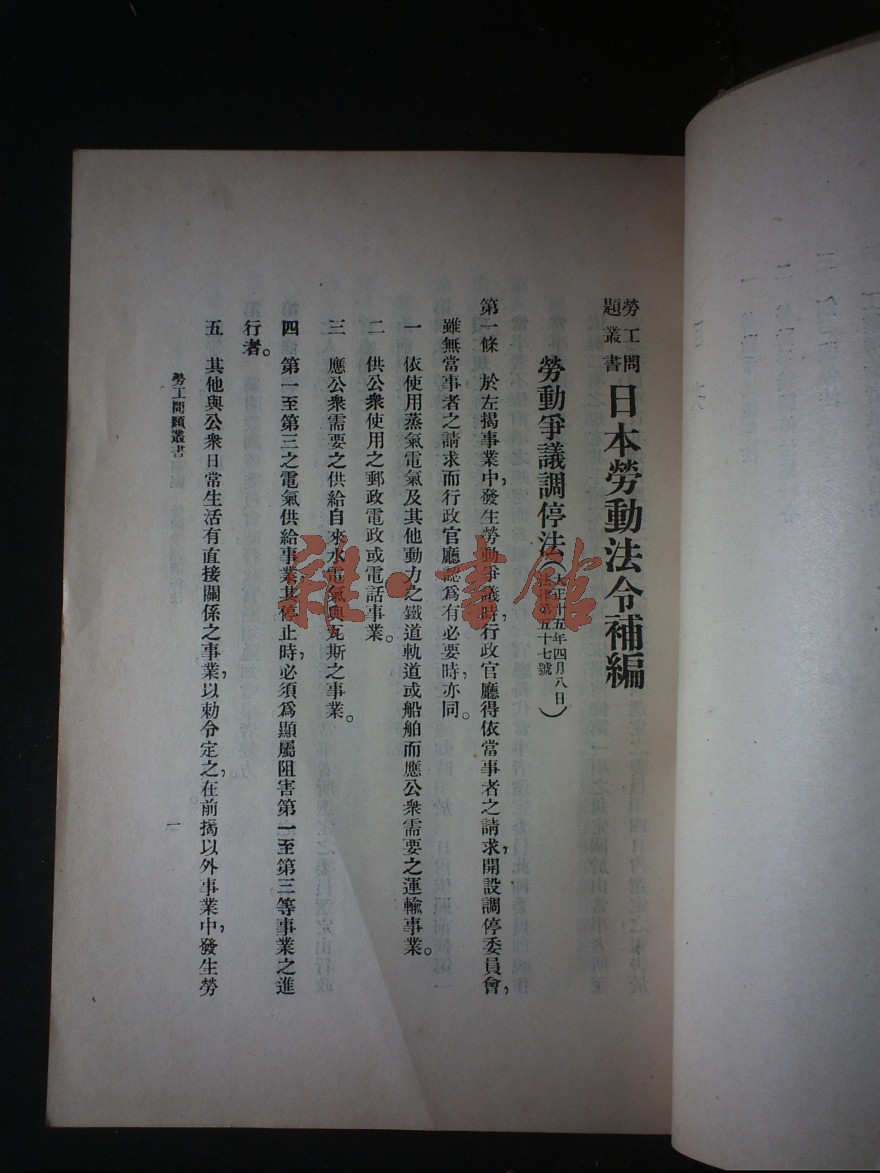 勞工問題叢書
日本勞動法令補編
勞動爭議調停法（大正十五年四月八日法律第五十七號）
第一條　於左揭事業中，發生勞動爭議時行政官廳得依當事者之請求，開設調停委員會，
雖無當事者之請求而行政官廳認爲有必要時，亦同。
一　依使用蒸氣電氣及其他動力之鐵道軌道或船舶而應公衆需要之運輸事業。
二　供公衆使用之郵政電政或電話事業。
三　應公衆需要之供給自來水電氣與瓦斯之事業。
四　第一至第三之電氣供給事業，其停止時，必須爲顯屬阻害第一至第三等事業之進
行者。
五　其他與公衆日常生活有直接關係之事業，以勅令定之，在前揭以外事業中，發生勞
勞工問題叢書
一
雜·書館